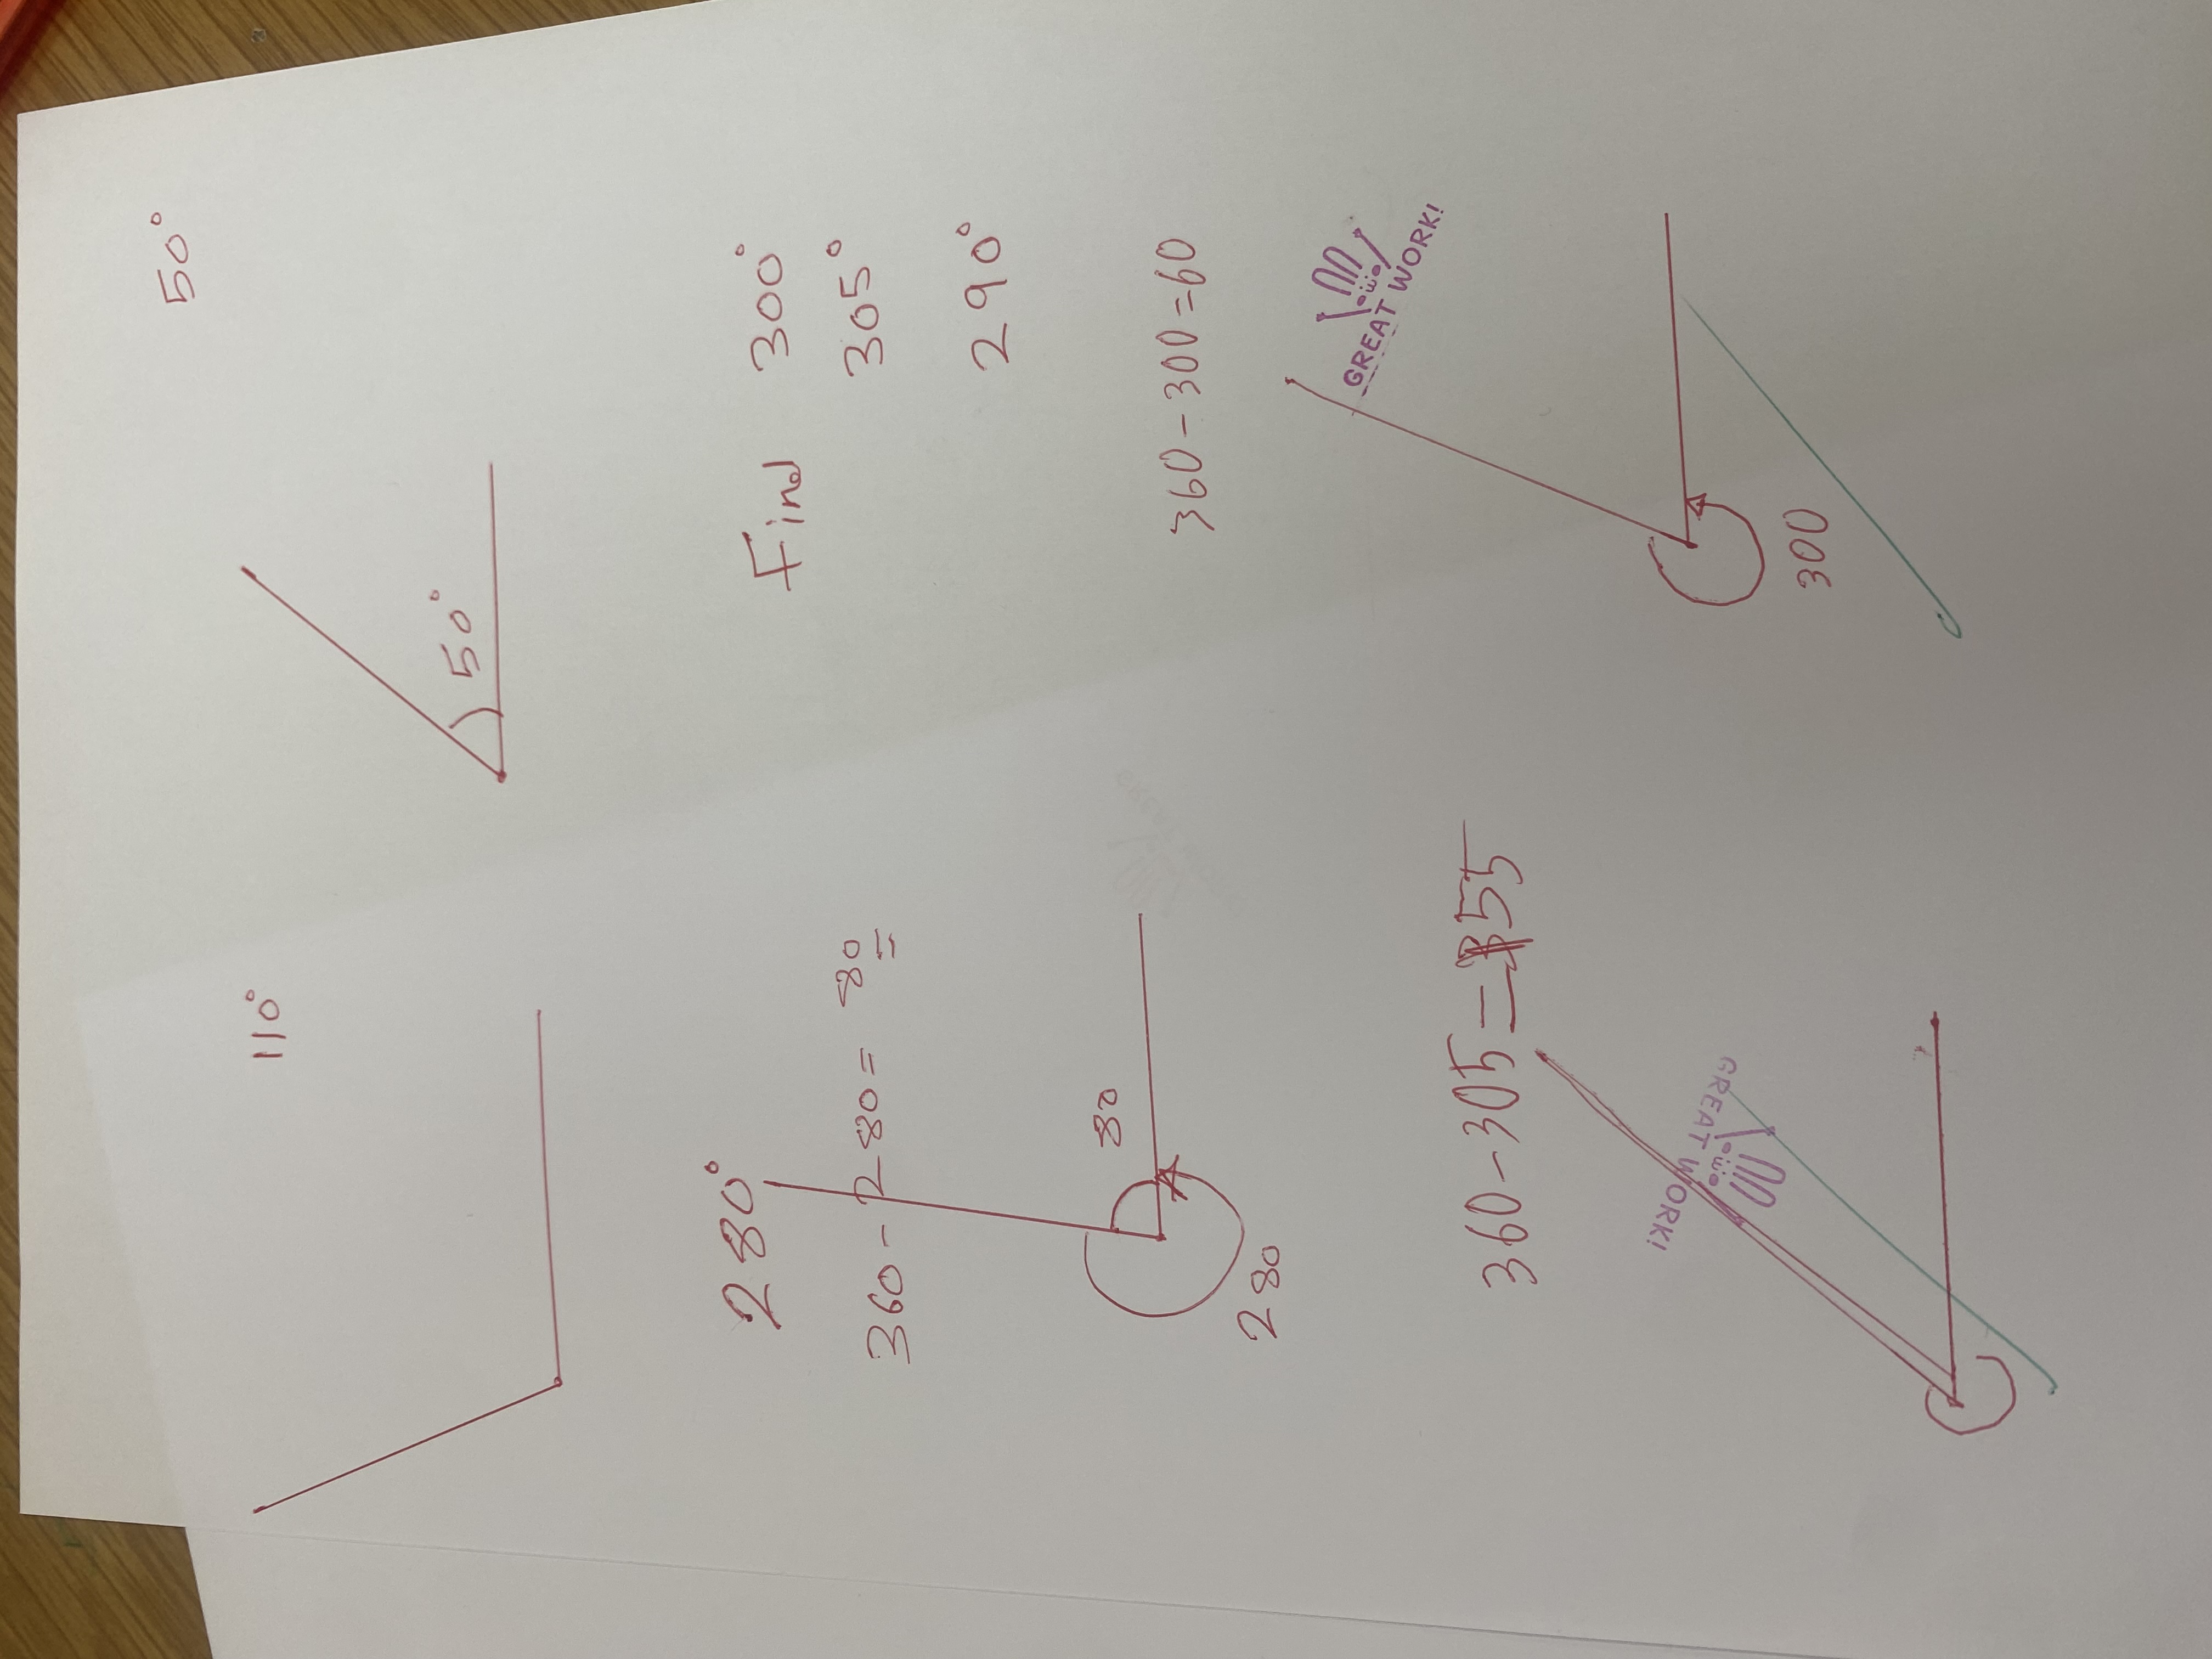 110°
50°
50°
280°
360 - 280 = 80
80
280
Find 300°
305°
290°
360 - 300 = 60
GREAT WORK!
300
360 - 305 = 55
GREAT WORK!